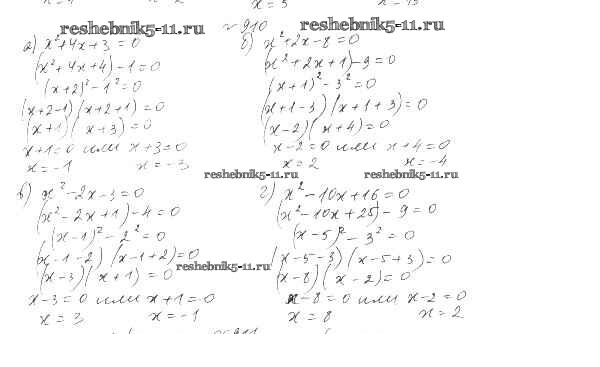 reshebnik5-11.ru
№ 910
reshebnik5-11.ru
а) x²+4x+3=0
(x²+4x+4)-1=0
(x+2)²-1²=0
(x+2-1)(x+2+1)=0
(x+1)(x+3)=0
x+1=0 или x+3=0
x=-1 x=-3
б) x²+2x-8=0
(x²+2x+1)-9=0
(x+1)²-3²=0
(x+1-3)(x+1+3)=0
(x-2)(x+4)=0
x-2=0 или x+4=0
x=2 x=-4
reshebnik5-11.ru
reshebnik5-11.ru
в) x²-2x-3=0
(x²-2x+1)-4=0
(x-1)²-2²=0
(x-1-2)(x-1+2)=0
(x-3)(x+1)=0
x-3=0 или x+1=0
x=3 x=-1
reshebnik5-11.ru
г) x²-10x+16=0
(x²-10x+25)-9=0
(x-5)²-3²=0
(x-5-3)(x-5+3)=0
(x-8)(x-2)=0
x-8=0 или x-2=0
x=8 x=2